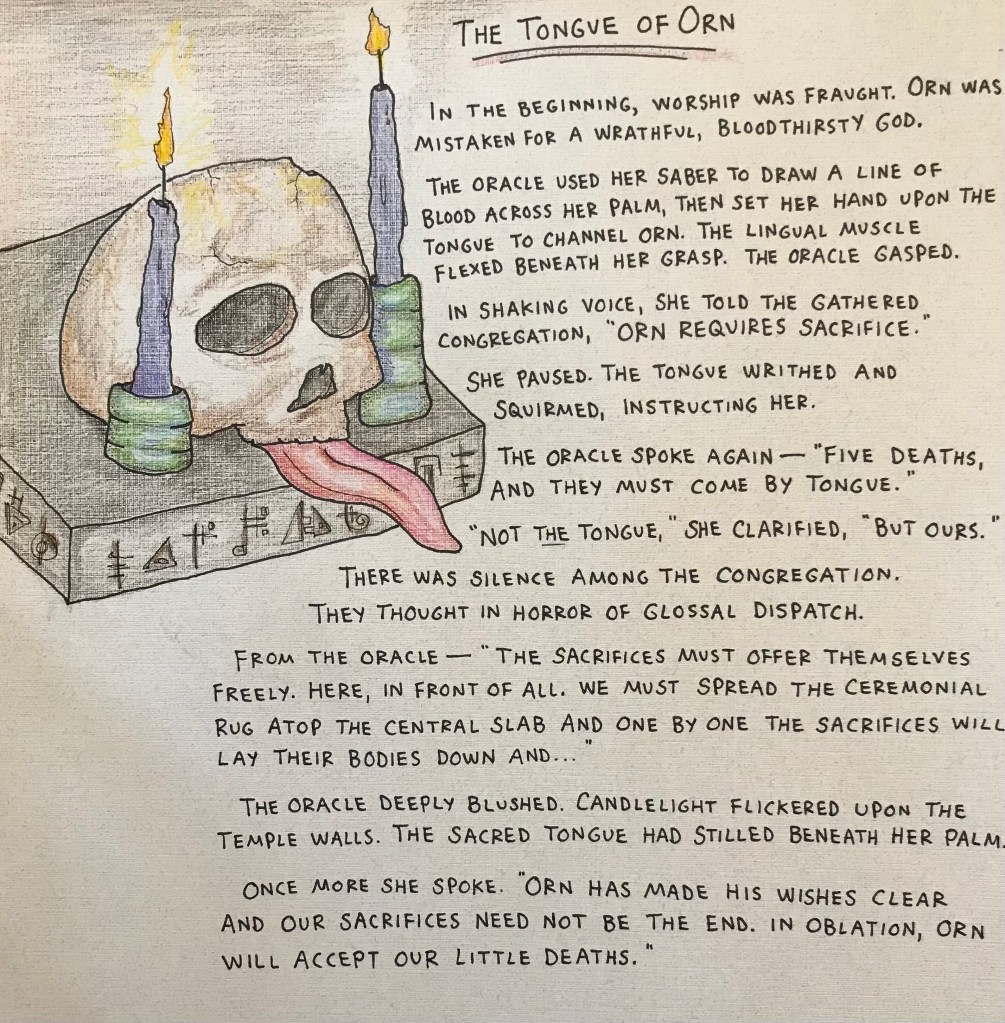 THE TONGUE OF ORN
IN THE BEGINNING, WORSHIP WAS FRAUGHT. ORN WAS
MISTAKEN FOR A WRATHFUL, BLOODTHIRSTY GOD.
THE ORACLE USED HER SABER TO DRAW A LINE OF
BLOOD ACROSS HER PALM, THEN SET HER HAND UPON THE
TONGUE TO CHANNEL ORN. THE LINGUAL MUSCLE
FLEXED BENEATH HER GRASP. THE ORACLE GASPED.
IN SHAKING VOICE, SHE TOLD THE GATHERED
CONGREGATION, "ORN REQUIRES SACRIFICE."
SHE PAUSED. THE TONGUE WRITHED AND
SQUIRMED, INSTRUCTING HER.
THE ORACLE SPOKE AGAIN — "FIVE DEATHS,
AND THEY MUST COME BY TONGUE."
"NOT THE TONGUE," SHE CLARIFIED, "BUT OURS."
THERE WAS SILENCE AMONG THE CONGREGATION.
THEY THOUGHT IN HORROR OF GLOSSAL DISPATCH.
FROM THE ORACLE — "THE SACRIFICES MUST OFFER THEMSELVES
FREELY. HERE, IN FRONT OF ALL. WE MUST SPREAD THE CEREMONIAL
RUG ATOP THE CENTRAL SLAB AND ONE BY ONE THE SACRIFICES WILL
LAY THEIR BODIES DOWN AND..."
THE ORACLE DEEPLY BLUSHED. CANDLELIGHT FLICKERED UPON THE
TEMPLE WALLS. THE SACRED TONGUE HAD STILLED BENEATH HER PALM.
ONCE MORE SHE SPOKE. "ORN HAS MADE HIS WISHES CLEAR
AND OUR SACRIFICES NEED NOT BE THE END. IN OBLATION, ORN
WILL ACCEPT OUR LITTLE DEATHS."